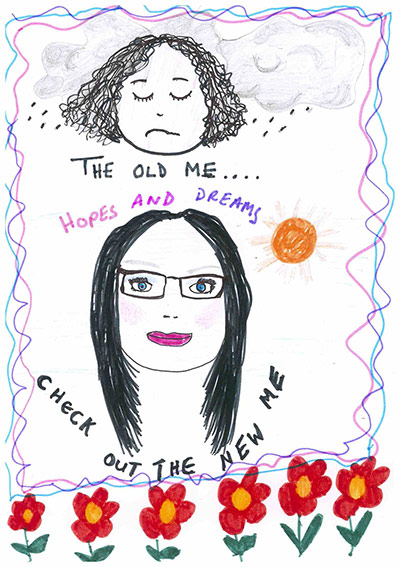 THE OLD ME....
HOPES AND DREAMS
CHECK OUT THE NEW ME